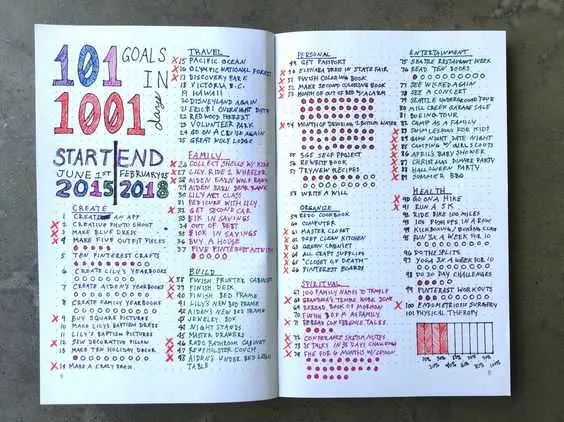 101 GOALS
IN
1001 days
START END
JUNE 1ST FEBRUARY 25
2015 2018
CREATE
1 CREATE AN APP
2 CREATIVE PHOTO SHOOT
3 MAKE BLUE DRESS
4 MAKE FIVE OUTFIT PIECES
5 TEN PINTEREST CRAFTS
6 CREATE LILY'S YEARBOOKS
7 CREATE AIDEN'S YEARBOOKS
8 CREATE FAMILY YEARBOOKS
9 BUY SQUARE PICTURES
10 MAKE LILY'S BAPTISM DRESS
11 LILY'S BAPTISM PICTURES
12 SEW DECORATIVE PILLOW
13 MAKE TEN HOLIDAY DECOR
14 MAKE A CRAZY DRESS
TRAVEL
15 PACIFIC OCEAN
16 OLYMPIC NATIONAL FOREST
17 DISCOVERY PARK
18 VICTORIA B.C.
19 HAWAII
20 DISNEYLAND AGAIN
21 ZOO OVERNIGHT DATE
22 REDWOOD FOREST
23 VOLUNTEER PARK
24 GO ON A CRUISE AGAIN
25 GREAT WOLF LODGE
FAMILY
26 COLLECT SHELLS W/ KIDS
27 LILY RIDE 2 WHEELER
28 AIDEN EARN WOLF BADGE
29 AIDEN EARN BEAR BADGE
30 LILY ART CLASS
31 PEDICURE WITH LILY
32 GET SECOND CAR
33 $1K IN SAVINGS
34 OUT OF DEBT
35 $10K IN SAVINGS
36 BUY A HOUSE
37 FIVE PINTEREST ACTIVITIES
BUILD
38 FINISH PRINTER CABINET
39 FINISH DESK
40 FINISH BED FRAME
41 LILY'S NEW BED FRAME
42 AIDEN'S NEW BED FRAME
43 JEWELRY BOX
44 NIGHT STANDS
45 MASTER DRAWERS
46 REDO BATHROOM CABINET
47 REUPHOLSTER COUCH
48 AIDEN'S UNDER BED LEGO
TABLE
PERSONAL
49 GET PASSPORT
50 ENTER A DRESS IN STATE FAIR
51 FINISH COLORING BOOK
52 MAKE SECOND COLORING BOOK
53 MONTH OF OUT OF BED W/ ALARM
55 SGF SELF PROJECT
56 REWRITE BOOK
57 TRY NEW RECIPES
58 WRITE A WILL
ORGANIZE
59 REDO COOKBOOK
60 COMPUTER
61 MASTER CLOSET
62 DEEP CLEAN KITCHEN
63 GREEN CABINET
64 ALL CRAFT SUPPLIES
65 "CLOSET OF DEATH"
66 PINTEREST BOARDS
SPIRITUAL
67 100 FAMILY NAMES TO TEMPLE
68 GRANDMA'S TEMPLE WORK DONE
69 REREAD BOOK OF MORMON
70 FINISH BOOK OF M AS FAMILY
71 REREAD CONFERENCE TALKS
72 CONFERENCE SKETCH NOTES
73 35 TALKS IN 35 DAYS CHALLENGE
74 FHE FOR 6 MONTHS
ENTERTAINMENT
75 SEATTLE RESTAURANT WEEK
76 READ TEN BOOKS
77 SEE WICKED AGAIN
78 SEE A CONCERT
79 SEATTLE UNDERGROUND TOUR
80 MILL CREEK GARAGE SALE
81 BOEING TOUR
82 CAMP AS A FAMILY
83 SWIM LESSONS FOR KIDS
84 GAME NIGHT DATE NIGHT
85 CAMPING W/ GIRL SCOUTS
86 APRIL'S BABY SHOWER
87 CHRISTMAS DINNER PARTY
88 HALLOWEEN PARTY
89 SUMMER BBQ
HEALTH
90 GO ON A HIKE
91 RUN A 5K
92 RIDE BIKE 100 MILES
93 10 PUSHUPS IN A ROW
94 KICKBOXING / BOXING CLASS
95 RUN 3X A WEEK FOR 10
96 DO THE SPLITS
97 YOGA 3X A WEEK FOR 10
98 DO 30 DAY CHALLENGES
99 PINTEREST WORKOUTS
100 ENDOMETRIOSIS SURGERY
101 PHYSICAL THERAPY